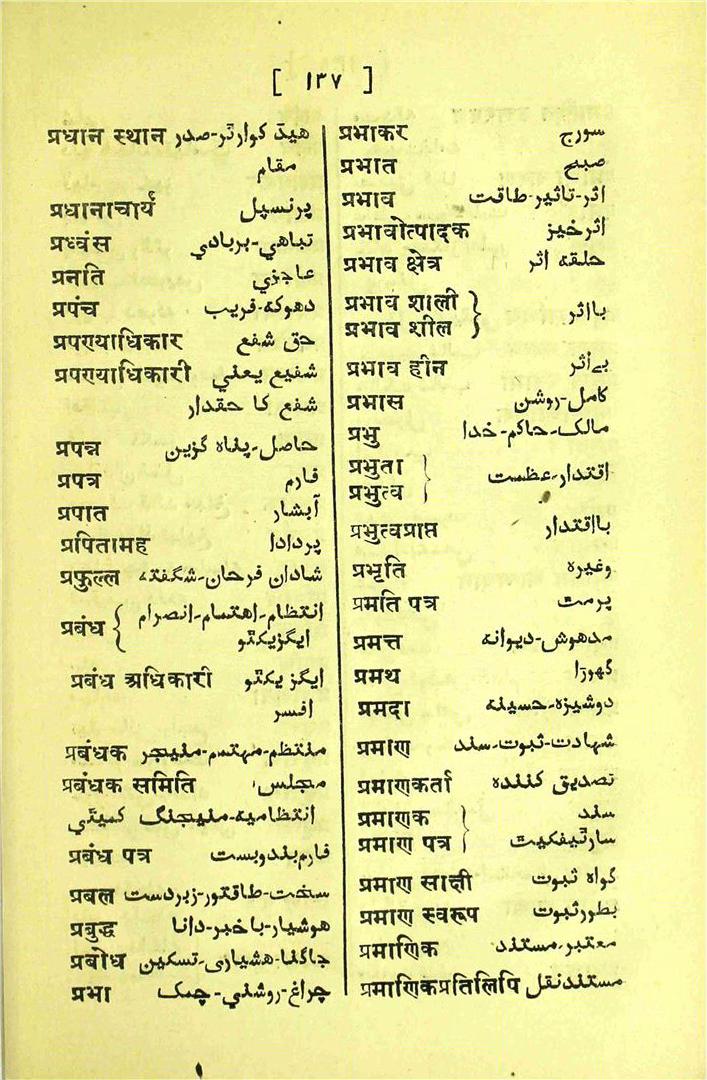 [ ۱۳۷ ]
प्रधान स्थान هیڈ کوارٹر-صدر
مقام
प्रधानाचार्य پرنسپل
प्रध्वंस تباهي-بربادي
प्रनति عاجزي
प्रपंच دھوکہ-فریب
प्रपण्याधिकार حق شفع
प्रपण्याधिकारी شفیع یعلي
شفع کا حقدار
प्रपन्न حاصل-پناہ گزین
प्रपत्र فارم
प्रपात آبشار
प्रपितामह پردادا
प्रफुल्ल شاداں فرحاں-شگفتہ
प्रबंध { انتظام-اهتمام-انصرام
ایگزیکٹو
प्रबंध अधिकारी ایگزیکٹو
افسر
प्रबंधक منتظم-مہتمم-منیجر
प्रबंधक समिति مجلس
انتظامیہ-منیجنگ کمیٹي
प्रबंध पत्र فارم بندوبست
प्रबल سخت-طاقتور-زبردست
प्रबुद्ध هوشیار-باخبر-دانا
प्रबोध جاگنا-هشیاری-تسکین
प्रभा چراغ-روشني-چمک
प्रभाकर سورج
प्रभात صبح
प्रभाव اثر-تاثیر-طاقت
प्रभावोत्पादक اثر خیز
प्रभाव क्षेत्र حلقہ اثر
प्रभाव शाली }
प्रभाव शील } بااثر
प्रभाव हीन بےاثر
प्रभास کامل-روشن
प्रभु مالک-حاکم-خدا
प्रभुता }
प्रभुत्व } اقتدار-عظمت
प्रभुत्वप्राप्त بااقتدار
प्रभृति وغیرہ
प्रमति पत्र پرمٹ
प्रमत्त مدهوش-دیوانہ
प्रमथ گھوڑا
प्रमदा دوشیزہ-حسینہ
प्रमाण شہادت-ثبوت-سند
प्रमाणकर्ता تصدیق کنندہ
प्रमाणक } سند
प्रमाण पत्र } سارٹیفکیٹ
प्रमाण साक्षी گواہ ثبوت
प्रमाण स्वरूप بطور ثبوت
प्रमाणिक معتبر-مستند
प्रमाणिकप्रतिलिपि مستند نقل